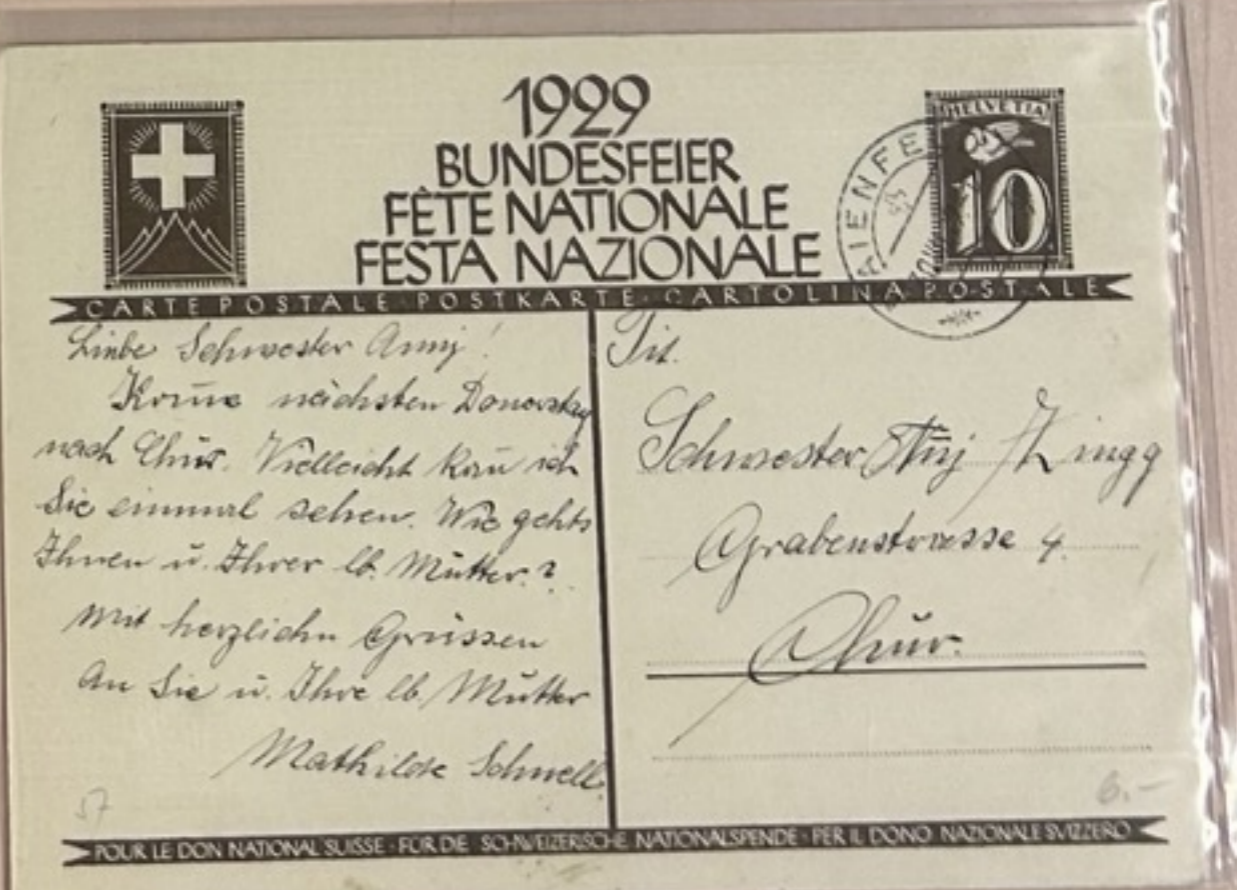 1929
BUNDESFEIER
FÊTE NATIONALE
FESTA NAZIONALE
HELVETIA
10
CARTE POSTALE POSTKARTE · CARTOLINA POSTALE
Liebe Schwester Anny!
Kom̅e nächsten Donerstag
nach Chur. Vielleicht kan̅ ich
Sie einmal sehen. Wie gehts
Ihnen u. Ihrer lb. Mutter?
Mit herzlichn Grüssen
An Sie u. Ihre lb. Mutter
Mathilde Schnell.
Tit.
Schwester Zingg
Grabenstrasse 4.
Chur.
57
6.–
POUR LE DON NATIONAL SUISSE · FÜR DIE SCHWEIZERISCHE NATIONALSPENDE · PER IL DONO NAZIONALE SVIZZERO